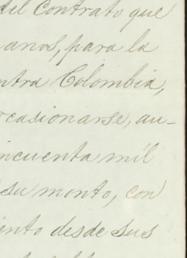 del Contrato que
anos, para la
ntra Colombia,
casionarse, au-
incuenta mil
su monto, con
iento desde sus